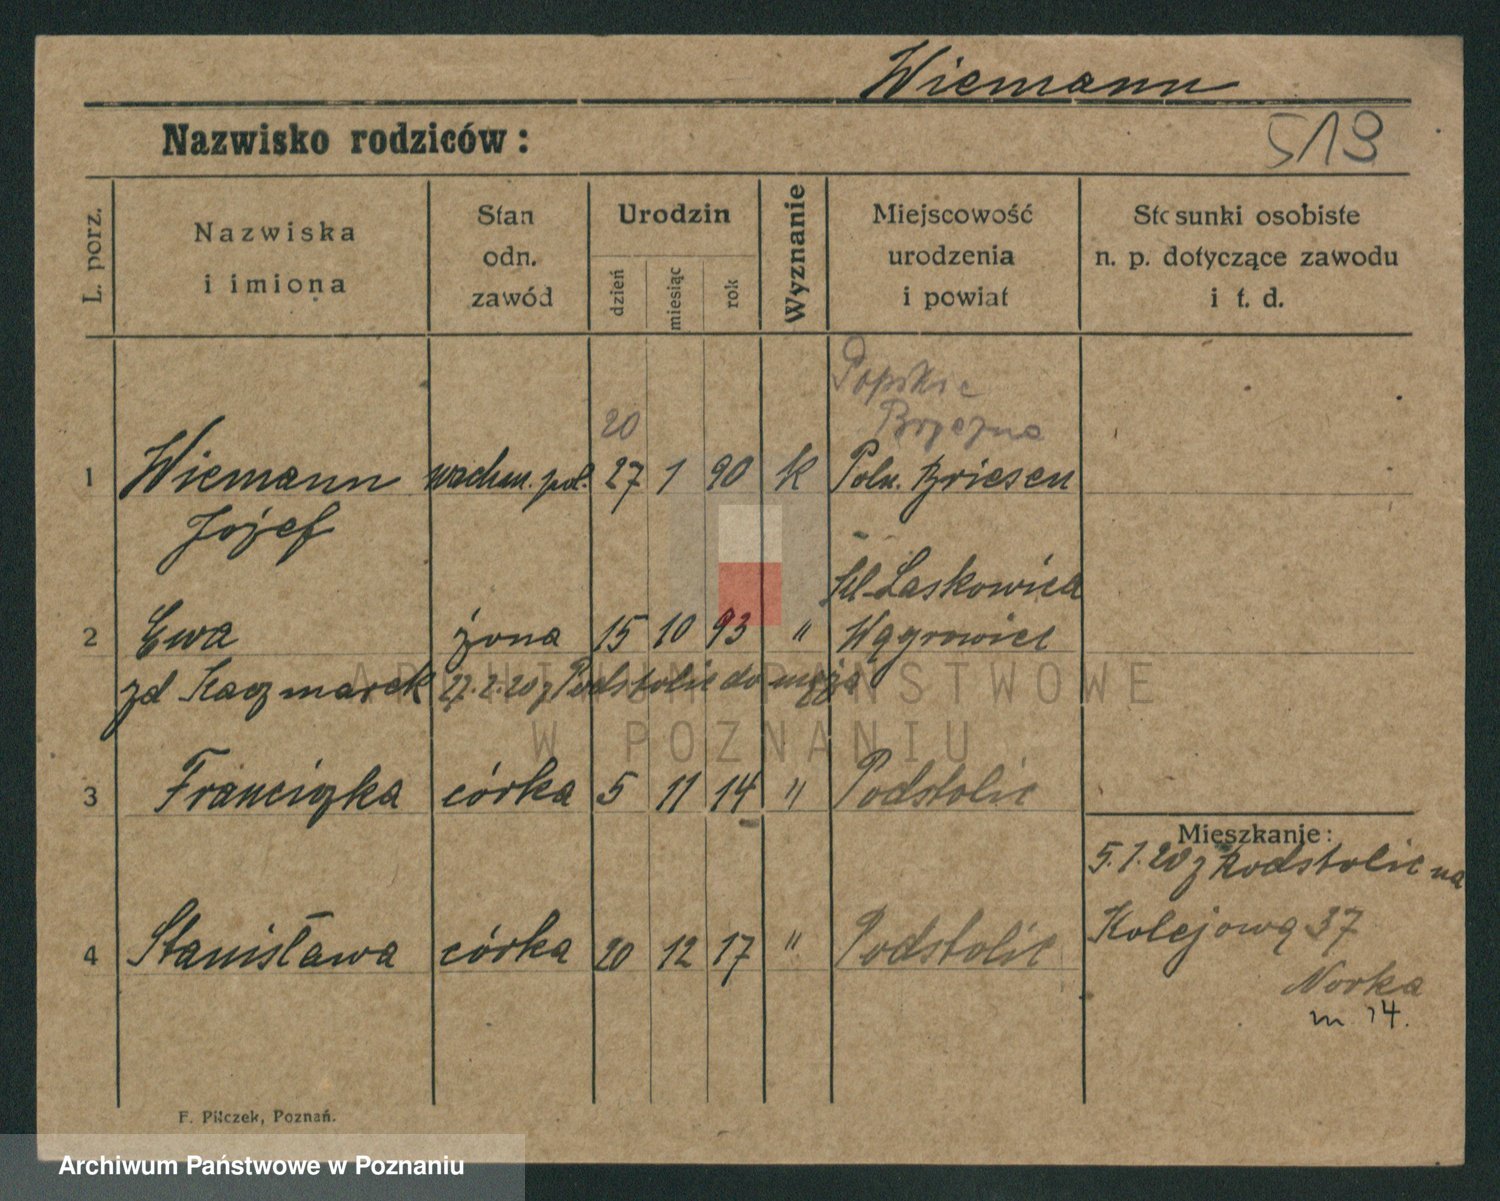 Wiemann
Nazwisko rodziców:
513
L. porz.
Nazwiska
i imiona
Stan
odn.
zawód
Urodzin
dzień
miesiąc
rok
Wyznanie
Miejscowość
urodzenia
i powiat
Stosunki osobiste
n. p. dotyczące zawodu
i t. d.
20
1 Wiemann wachm. pol. 27 1 90 k Poln. Briesen
Józef
Kl-Laskowica
2 Ewa żona 15 10 93 " Wągrowiec
zd Kaczmarek 27.2.20 z Podstolic do męża
3 Franciszka córka 5 11 14 " Podstolic
Mieszkanie:
5.1.20 z Podstolic na
Kolejową 37
4 Stanisława córka 20 12 17 " Podstolic
Norka
m 14.
F. Pilczek, Poznań.
ARCHIWUM PAŃSTWOWE
W POZNANIU
Archiwum Państwowe w Poznaniu